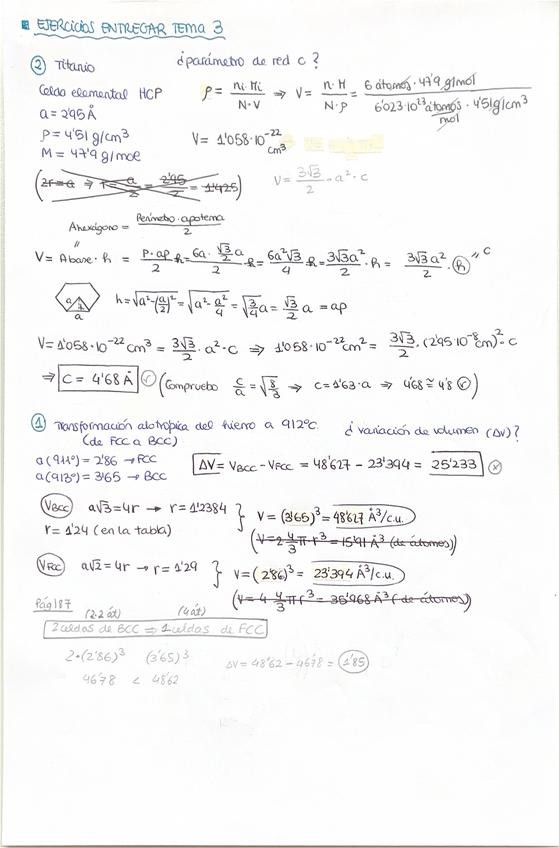 EJERCICIOS ENTREGAR TEMA 3
② Titanio ¿parámetro de red c?
Celda elemental HCP
a = 2'95 Å
ρ = 4'51 g/cm³
M = 47'9 g/mol
ρ = ni·Mi / N·V ⇒ V = n·M / N·ρ = 6 átomos · 47'9 g/mol / 6'023·10²³ átomos/mol · 4'51 g/cm³
V = 1'058·10⁻²² cm³
V = 3√3/2 · a² · c
(2r = a ⇒ r = a/2 = 2'95/2 = 1'425)
A hexágono = Perímetro · apotema / 2
V = A base · h = P·ap/2 · h = 6a · √3/2 a / 2 · h = 6a²√3/4 · h = 3√3a²/2 · h = 3√3a²/2 · h = c
a a h = √a²-(a/2)² = √a² - a²/4 = √3/4 a = √3/2 a = ap
V = 1'058·10⁻²² cm³ = 3√3/2 · a² · c ⇒ 1'058·10⁻²² cm² = 3√3/2 · (2'95·10⁻⁸ cm)² · c
⇒ C = 4'68 Å ✓ (Compruebo c/a = √8/3 → c = 1'63·a ⇒ 4'68 ≃ 4'8 ✓)
① Transformación alotrópica del hierro a 912°C. ¿variación de volumen (ΔV)?
(de FCC a BCC)
a(911°) = 2'86 → FCC
a(913°) = 3'65 → BCC
ΔV = VBCC - VFCC = 48'627 - 23'394 = 25'233
VBCC a√3 = 4r → r = 1'2384
r = 1'24 (en la tabla)
V = (3'65)³ = 48'627 Å³/c.u.
(V = 2 · 4/3 π·r³ = 15'91 Å³ (de átomos))
VFCC a√2 = 4r → r = 1'29
V = (2'86)³ = 23'394 Å³/c.u.
(V = 4 · 4/3 π r³ = 35'968 Å³ (de átomos))
Pág 187 (2·2 át) (4 át)
2 celdas de BCC ⇒ 1 celdas de FCC
2·(2'86)³ (3'65)³
46'78 < 48'62
ΔV = 48'62 - 46'78 = 1'85